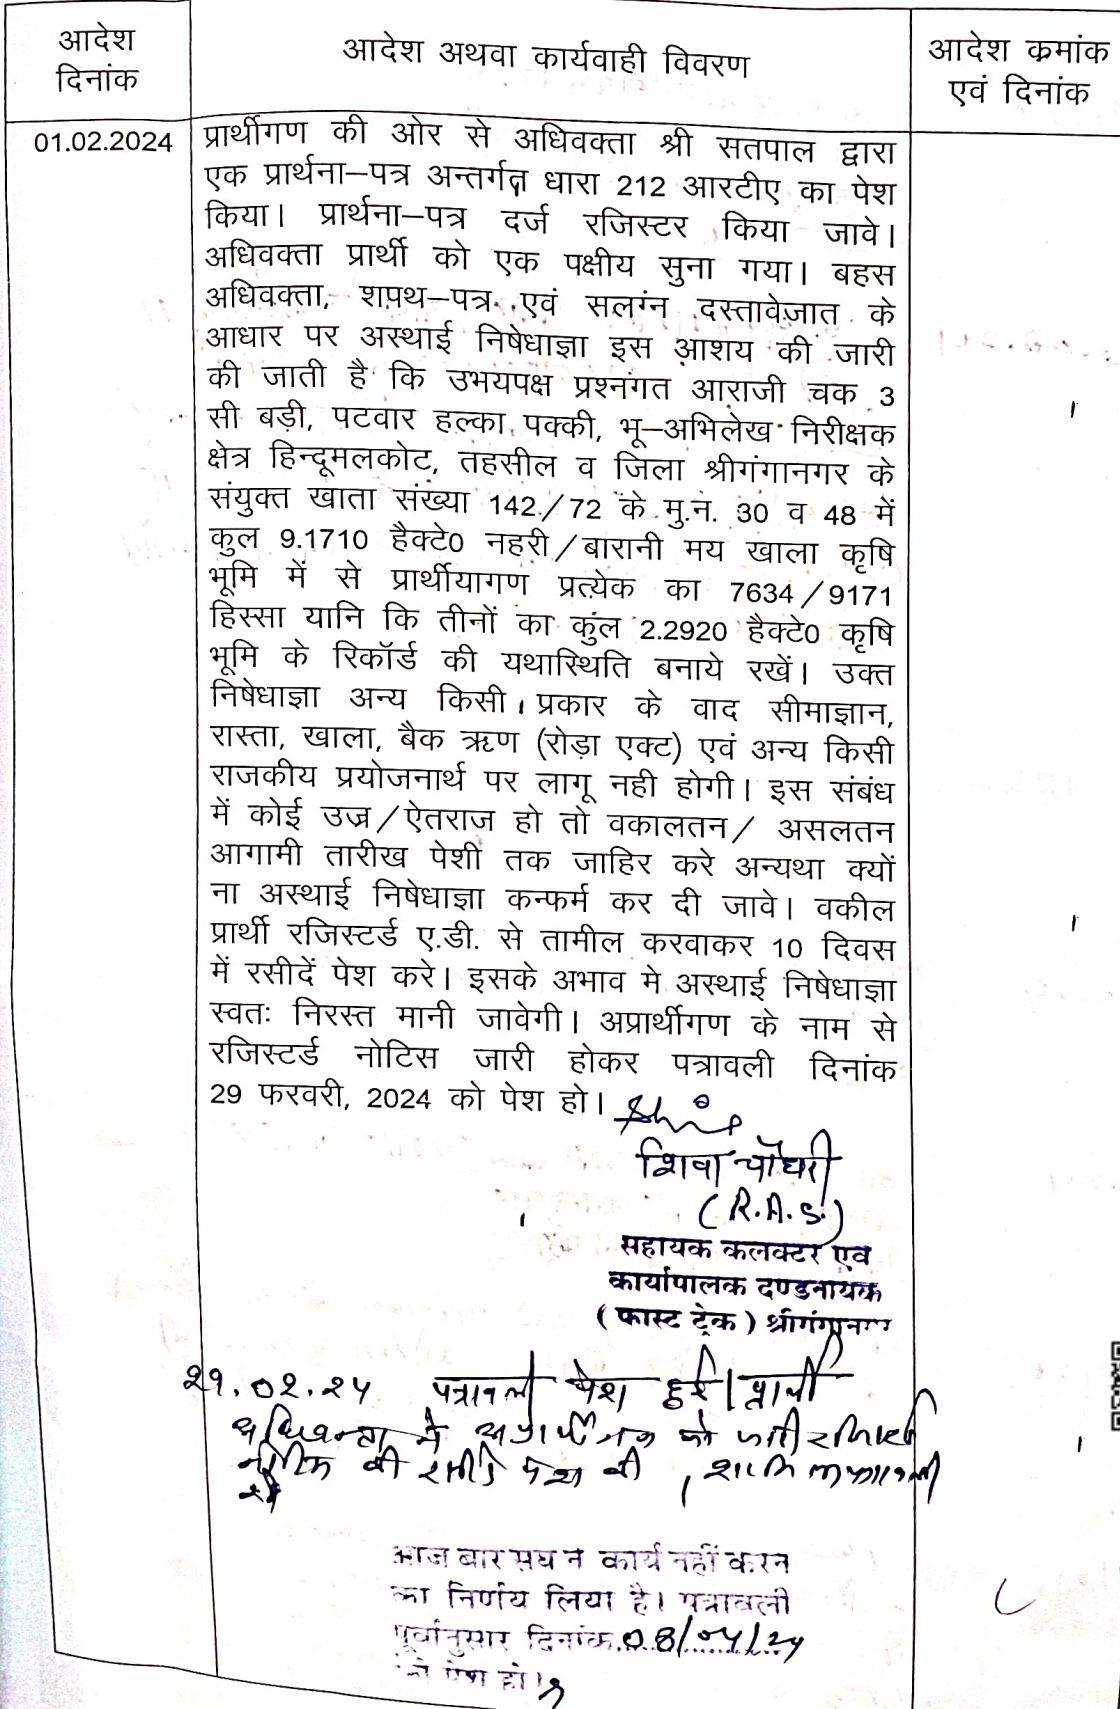 आदेश
दिनांक
आदेश अथवा कार्यवाही विवरण
आदेश क्रमांक
एवं दिनांक
01.02.2024
प्रार्थीगण की ओर से अधिवक्ता श्री सतपाल द्वारा
एक प्रार्थना–पत्र अन्तर्गत धारा 212 आरटीए का पेश
किया। प्रार्थना–पत्र दर्ज रजिस्टर किया जावे।
अधिवक्ता प्रार्थी को एक पक्षीय सुना गया। बहस
अधिवक्ता, शपथ–पत्र एवं सलग्ंन दस्तावेजात के
आधार पर अस्थाई निषेधाज्ञा इस आशय की जारी
की जाती है कि उभयपक्ष प्रश्नंगत आराजी चक 3
सी बड़ी, पटवार हल्का पक्की, भू–अभिलेख निरीक्षक
क्षेत्र हिन्दूमलकोट, तहसील व जिला श्रीगंगानगर के
संयुक्त खाता संख्या 142/72 के मु.नं. 30 व 48 में
कुल 9.1710 हैक्टे0 नहरी/बारानी मय खाला कृषि
भूमि में से प्रार्थीयागण प्रत्येक का 7634/9171
हिस्सा यानि कि तीनों का कुल 2.2920 हैक्टे0 कृषि
भूमि के रिकॉर्ड की यथास्थिति बनाये रखें। उक्त
निषेधाज्ञा अन्य किसी प्रकार के वाद सीमाज्ञान,
रास्ता, खाला, बैक ऋण (रोड़ा एक्ट) एवं अन्य किसी
राजकीय प्रयोजनार्थ पर लागू नही होगी। इस संबंध
में कोई उज्र/ऐतराज हो तो वकालतन/ असलतन
आगामी तारीख पेशी तक जाहिर करे अन्यथा क्यों
ना अस्थाई निषेधाज्ञा कन्फर्म कर दी जावे। वकील
प्रार्थी रजिस्टर्ड ए.डी. से तामील करवाकर 10 दिवस
में रसीदें पेश करे। इसके अभाव मे अस्थाई निषेधाज्ञा
स्वतः निरस्त मानी जावेगी। अप्रार्थीगण के नाम से
रजिस्टर्ड नोटिस जारी होकर पत्रावली दिनांक
29 फरवरी, 2024 को पेश हो।
शिवा चौधरी
(R.A.S.)
सहायक कलक्टर एवं
कार्यापालक दण्डनायक
(फास्ट ट्रेक) श्रीगंगानगर
29.02.24 पत्रावली पेश हुई। प्रार्थी
अधिवक्ता ने अप्रार्थीगण को जारी रजिस्टर्ड
नोटिस की रसीदें पेश की
आज बार संघ ने कार्य नहीं करने
का निर्णय लिया है। पत्रावली
पूर्वानुसार दिनांक 08/04/24
को पेश हो।